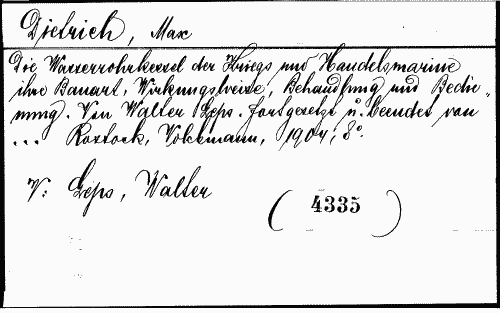 Dietrich, Max
Die Wasserrohrkessel der Kriegs und Handelsmarine
ihre Bauart, Wirkungsweise, Behandlung und Bedie-
nung. Von Walter Leps. fortgesetzt u. beendet von
... Rostock, Volckmann, 1904; 8°.
V: Leps, Walter
(4335)